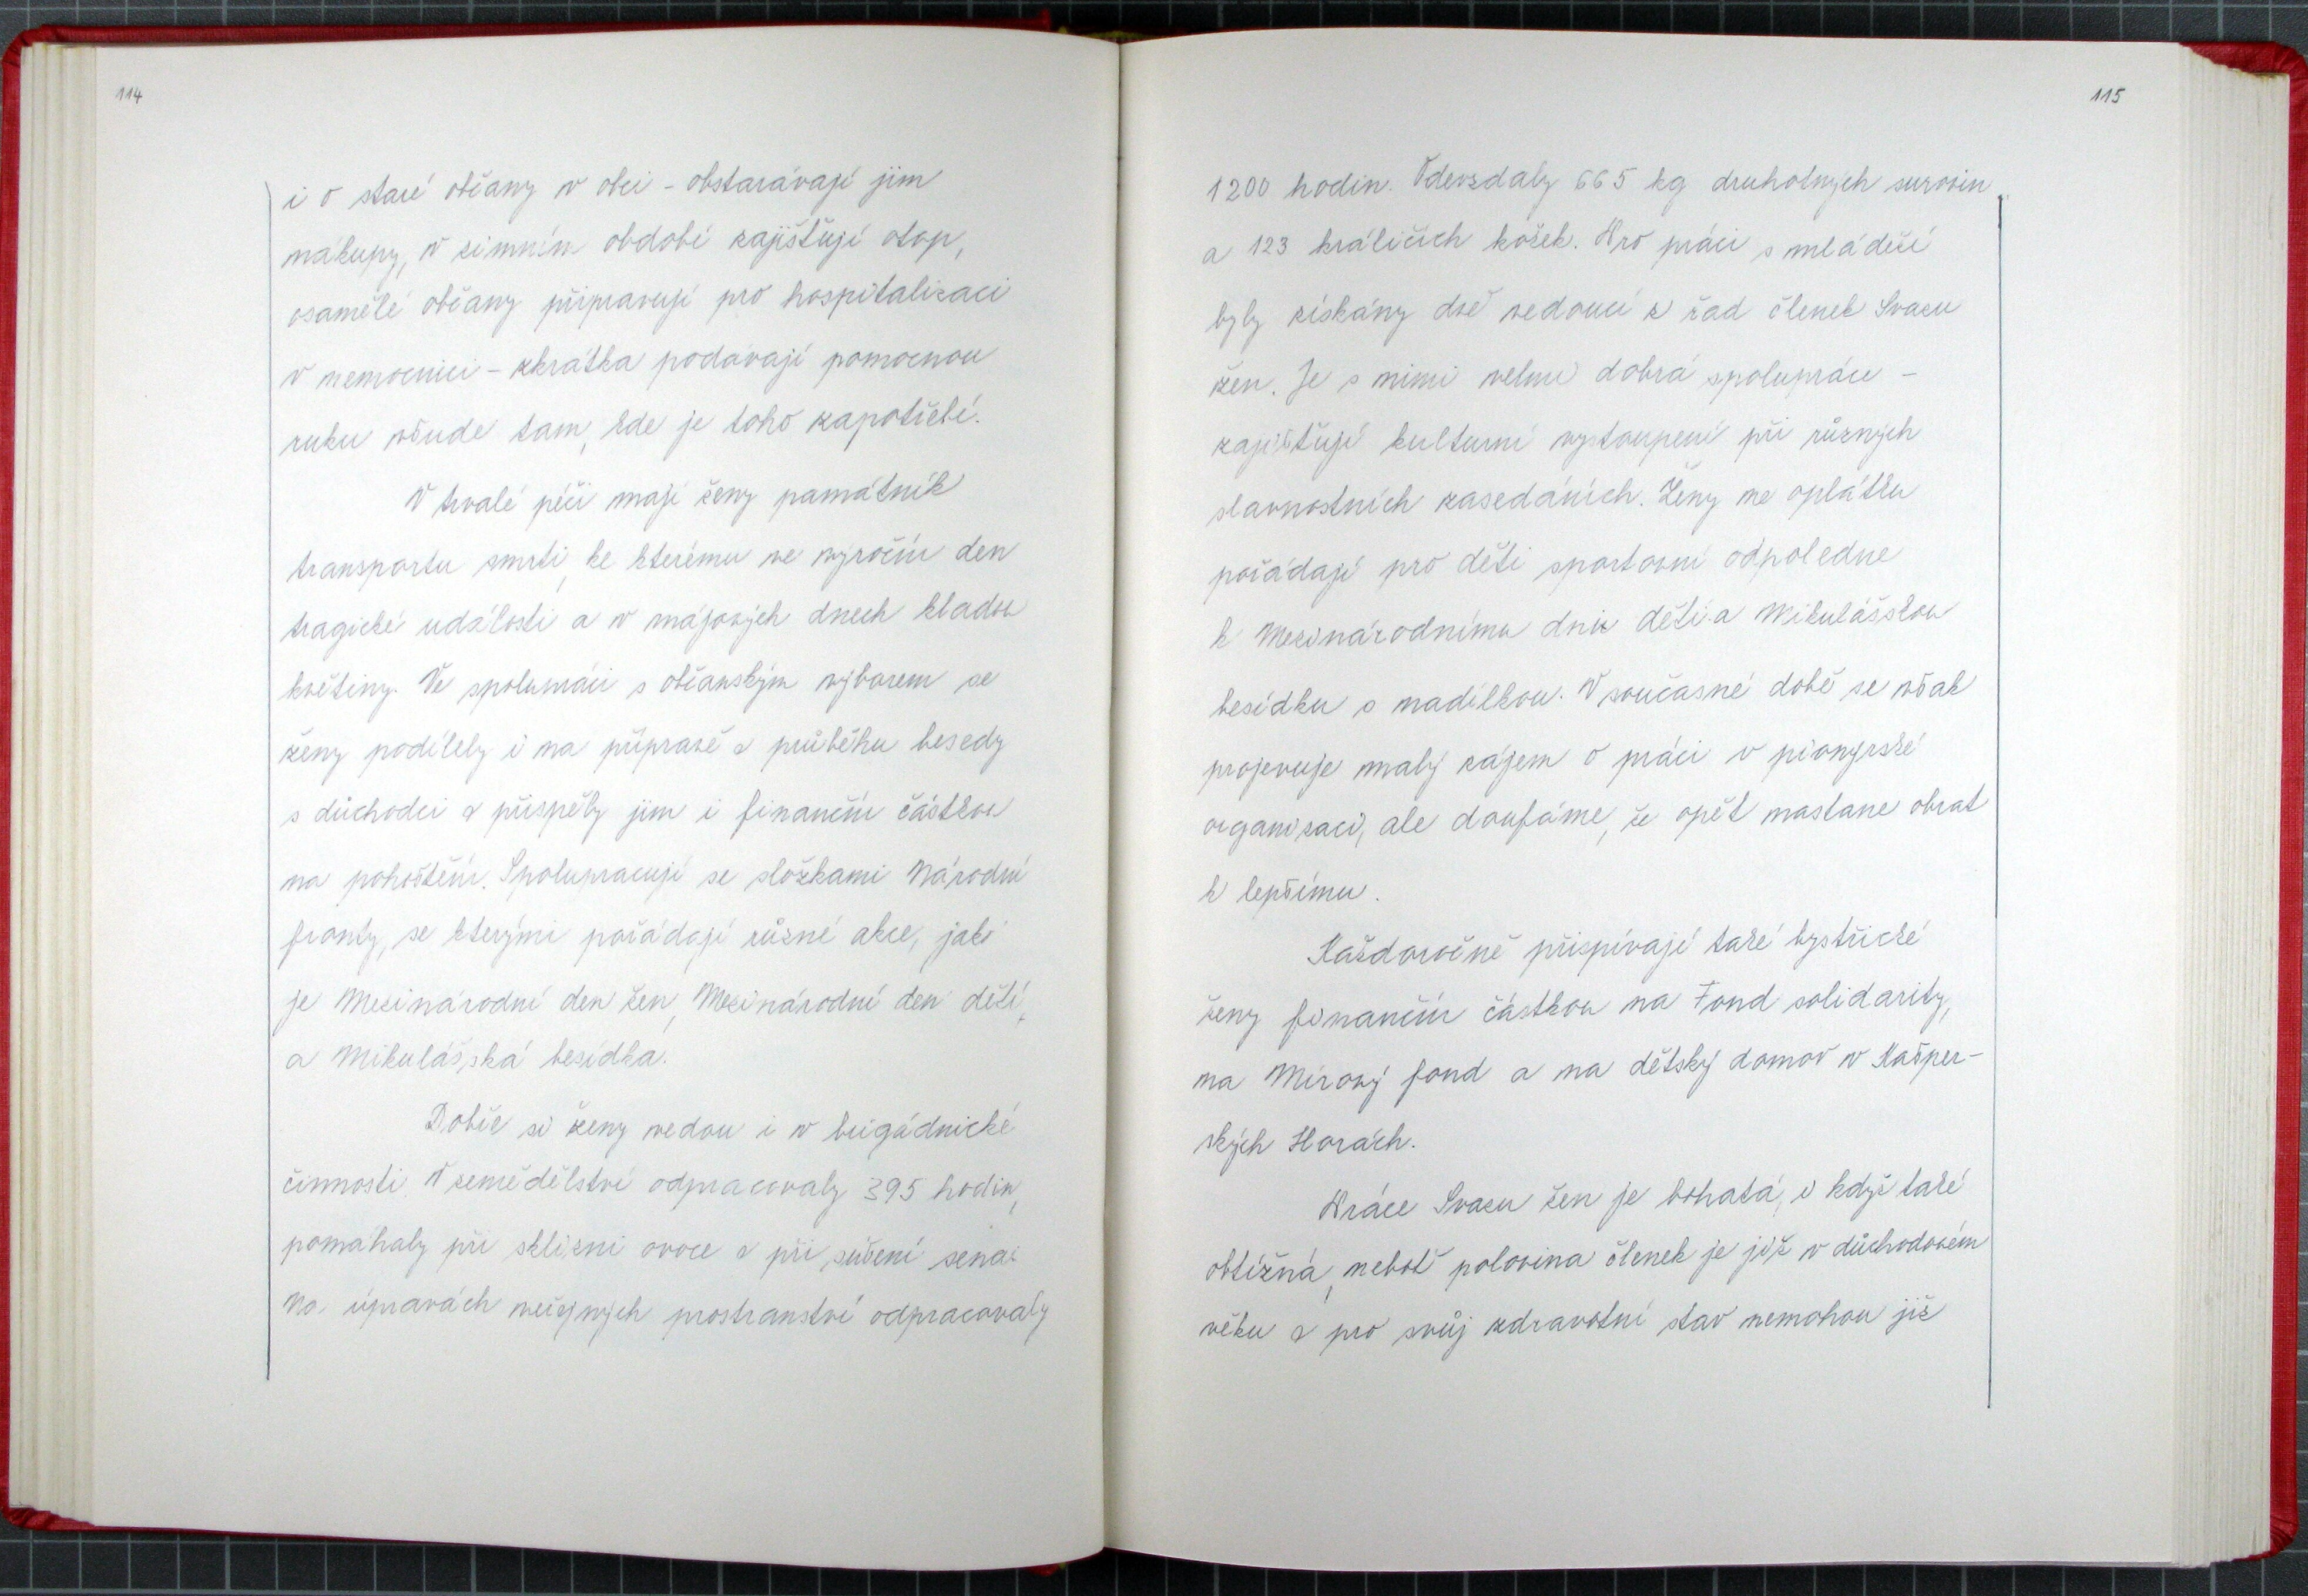 114
i o staré občany v obci - obstarávají jim
nákupy, v zimním období zajišťují otop,
osamělé občany připravují pro hospitalizaci
v nemocnici - zkrátka podávají pomocnou
ruku všude tam, kde je toho zapotřebí.
V trvalé péči mají ženy památník
transportu smrti, ke kterému ve výroční den
tragické události a v májových dnech kladou
květiny. Ve spolupráci s občanským výborem se
ženy podílely i na přípravě a průběhu besedy
s důchodci a přispěly jim i finanční částkou
na pohoštění. Spolupracují se složkami Národní
fronty, se kterými pořádají různé akce, jako
je Mezinárodní den žen, Mezinárodní den dětí,
a Mikulášská besídka.
Dobře si ženy vedou i v brigádnické
činnosti. V zemědělství odpracovaly 395 hodin,
pomáhaly při sklizni ovoce a při sušení sena.
Na úpravách veřejných prostranství odpracovaly
115
1200 hodin. Odevzdaly 665 kg druhotných surovin
a 123 králičích kožek. Pro práci s mládeží
byly získány dvě vedoucí z řad členek Svazu
žen. Je s nimi velmi dobrá spolupráce -
zajišťují kulturní vystoupení při různých
slavnostních zasedáních. Ženy na oplátku
pořádají pro děti sportovní odpoledne
k Mezinárodnímu dni dětí a Mikulášskou
besídku s nadílkou. V současné době se však
projevuje malý zájem o práci v pionýrské
organizaci, ale doufáme, že opět nastane obrat
k lepšímu.
Každoročně přispívají také bystřické
ženy finanční částkou na Fond solidarity,
na Mírový fond a na dětský domov v Kašper-
ských Horách.
Práce Svazu žen je bohatá, i když také
obtížná, neboť polovina členek je již v důchodovém
věku a pro svůj zdravotní stav nemohou již